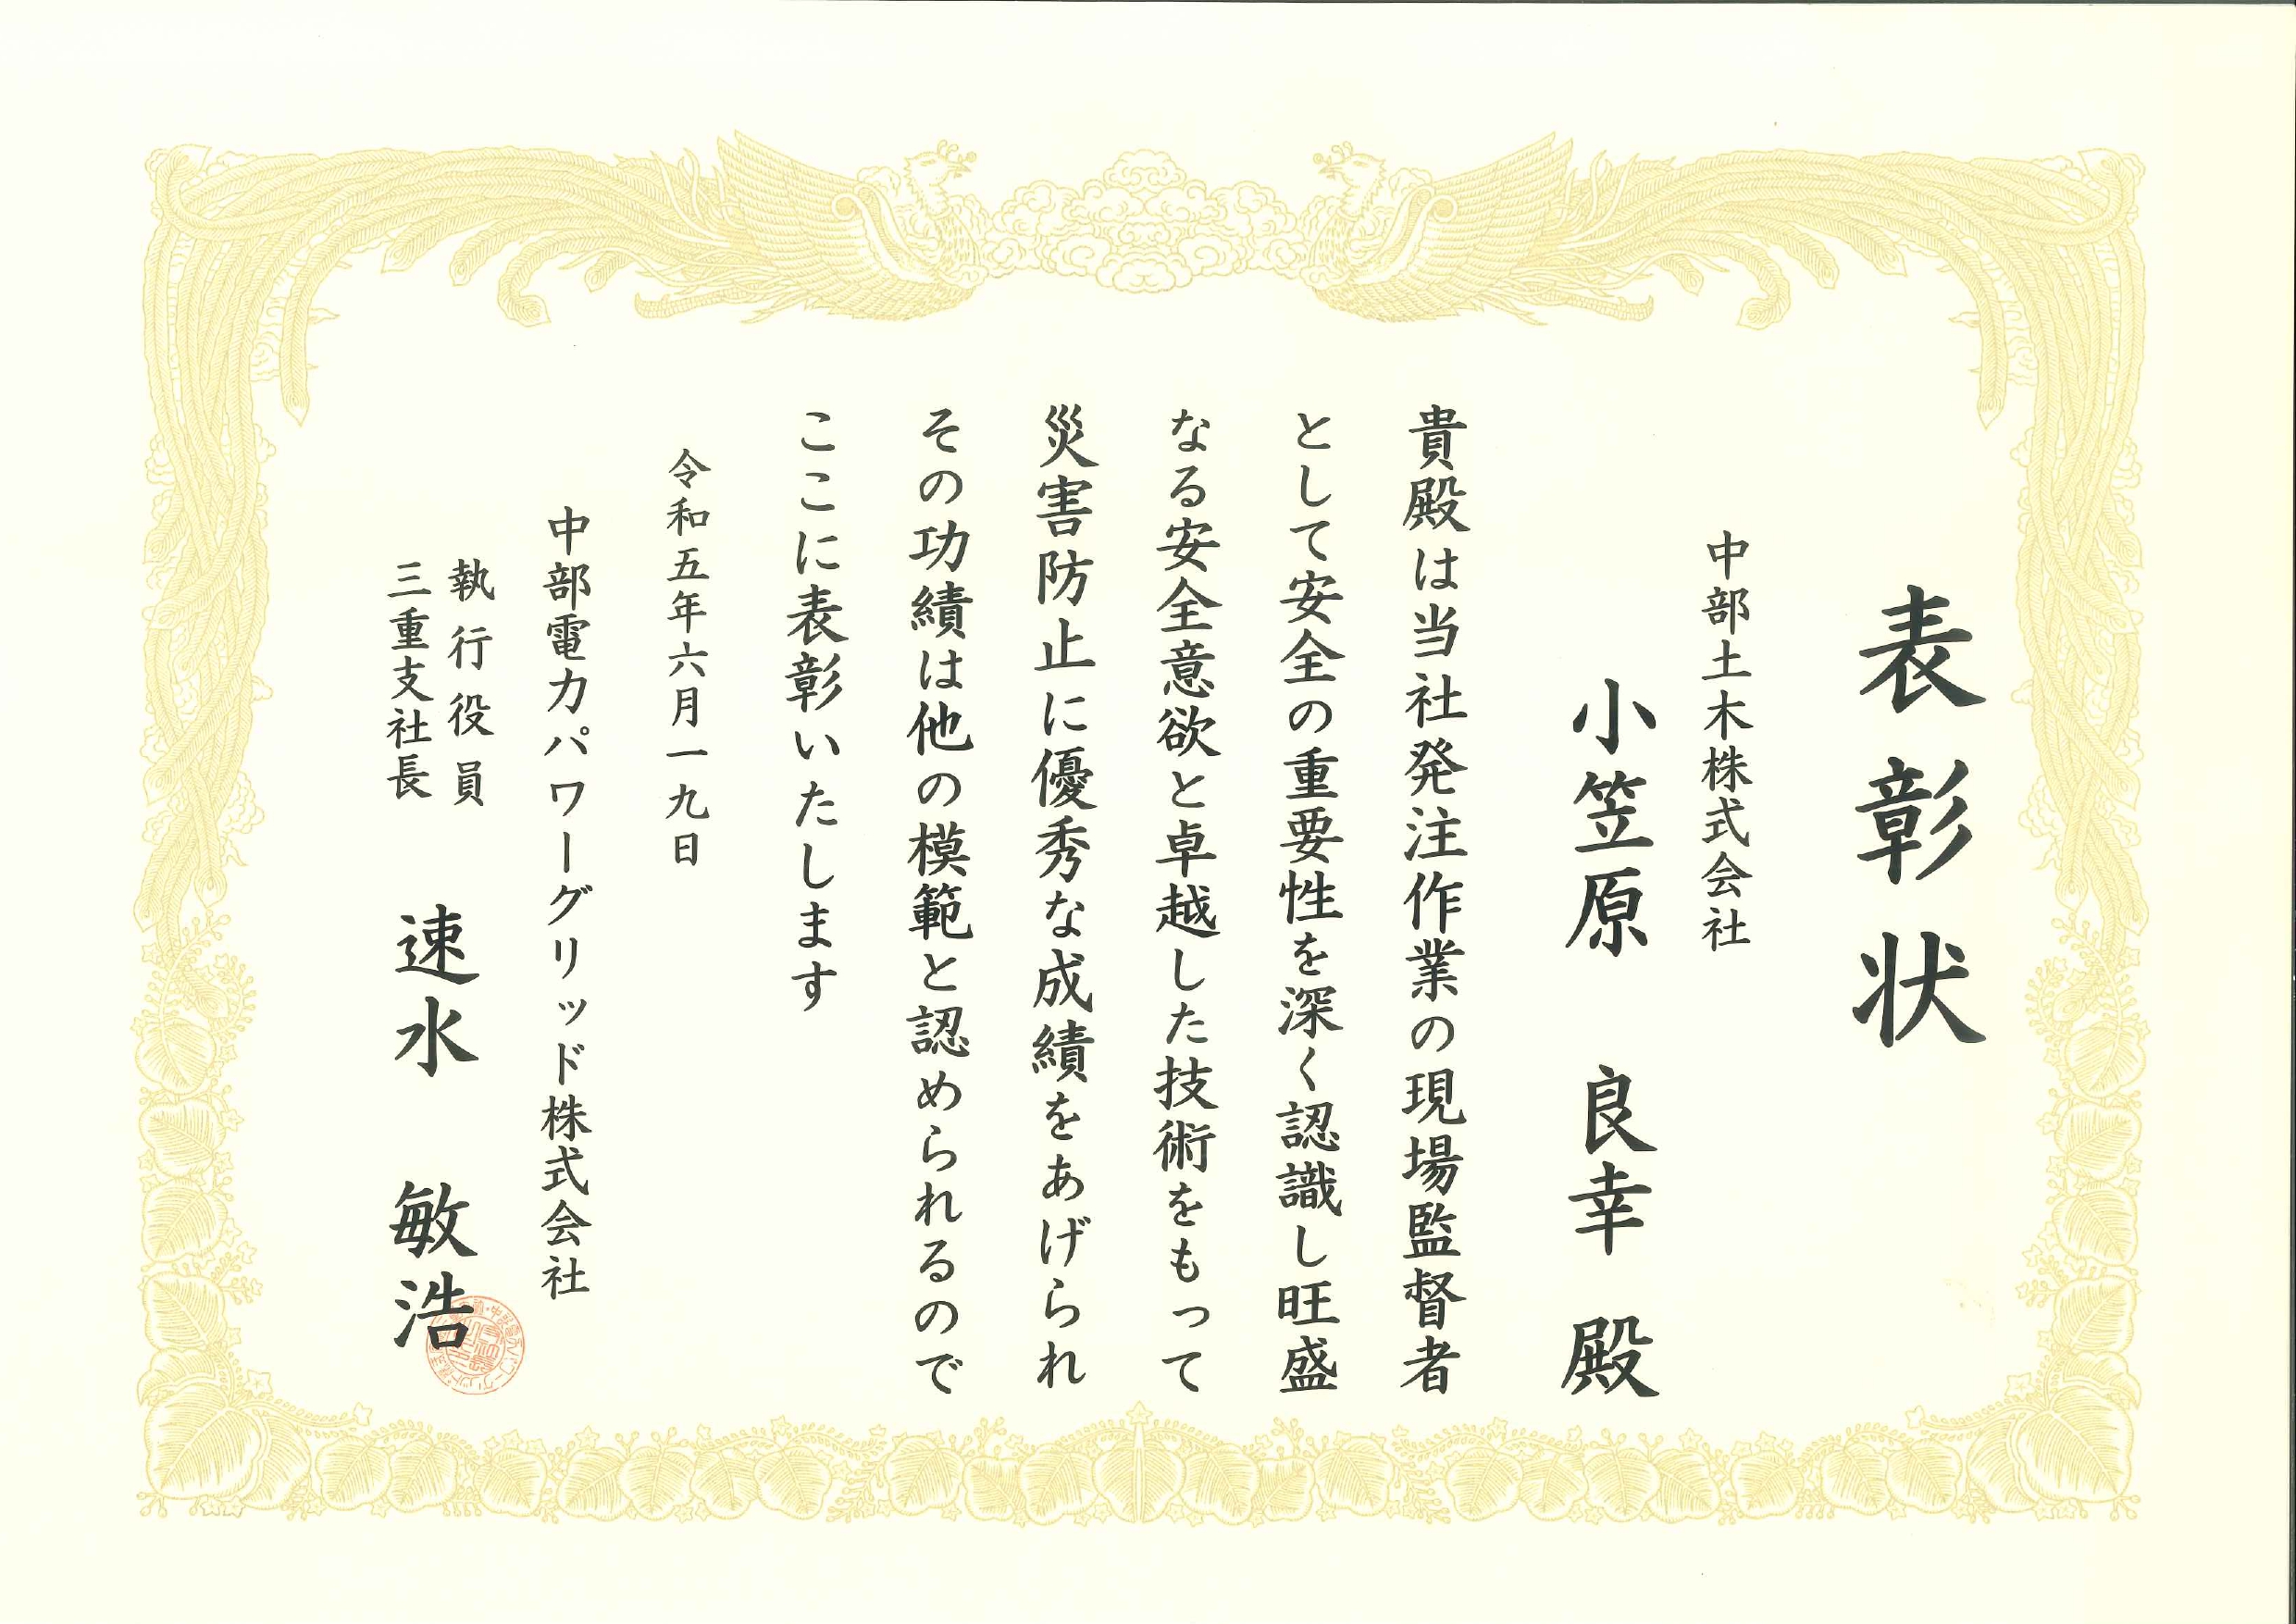 表彰状
中部土木株式会社
小笠原 良幸 殿
貴殿は当社発注作業の現場監督者
として安全の重要性を深く認識し旺盛
なる安全意欲と卓越した技術をもって
災害防止に優秀な成績をあげられ
その功績は他の模範と認められるので
ここに表彰いたします
令和五年六月一九日
中部電力パワーグリッド株式会社
執行役員
三重支社長
速水 敏浩